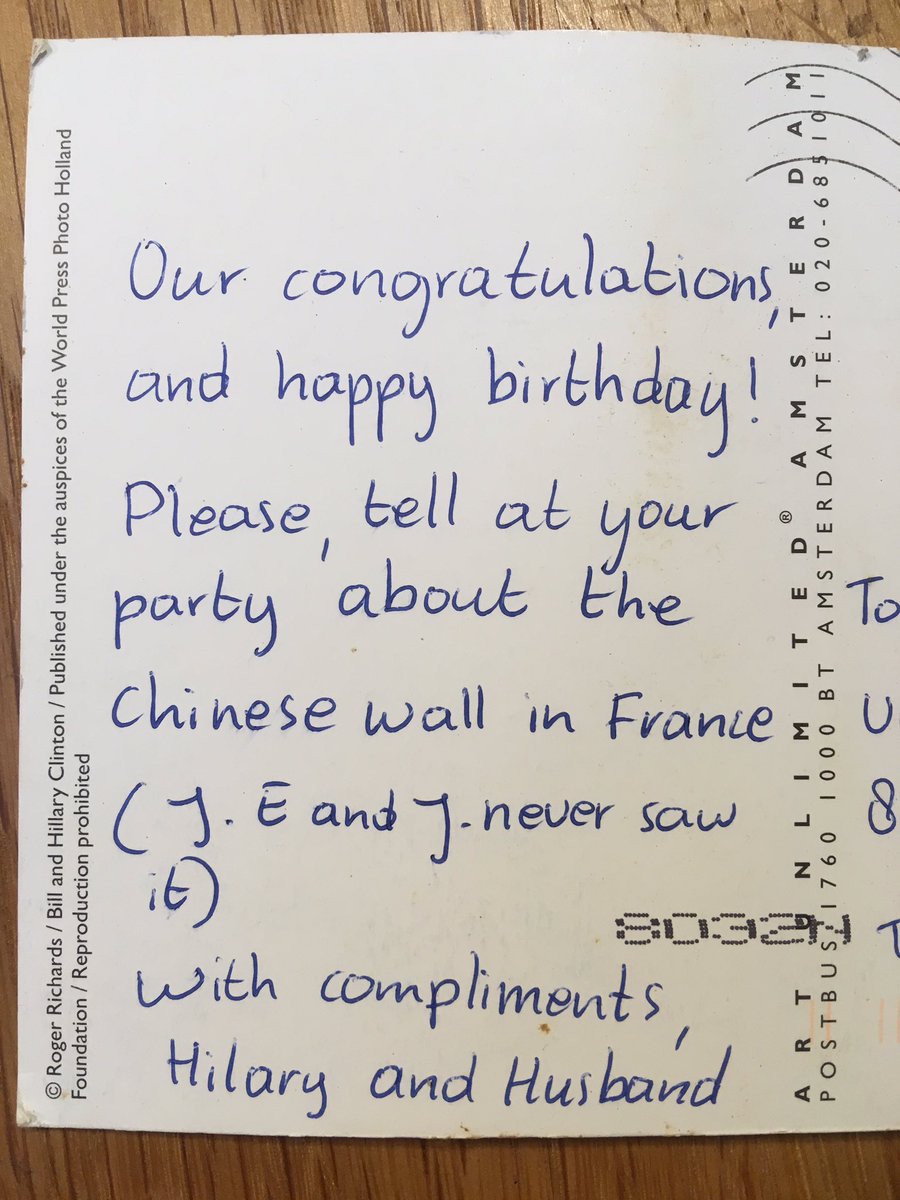 © Roger Richards / Bill and Hillary Clinton / Published under the auspices of the World Press Photo Holland
Foundation / Reproduction prohibited
Our congratulations,
and happy birthday!
Please, tell at your
party about the
Chinese wall in France
(J. E and J. never saw
it)
With compliments,
Hilary and Husband
8032N
ART UNLIMITED® AMSTERDAM
POSTBUS 1760 1000 BT AMSTERDAM TEL: 020-6851011
To
8